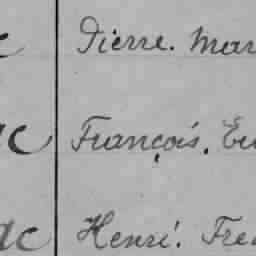 Pierre. Mar
François. Eu
Henri. Fred